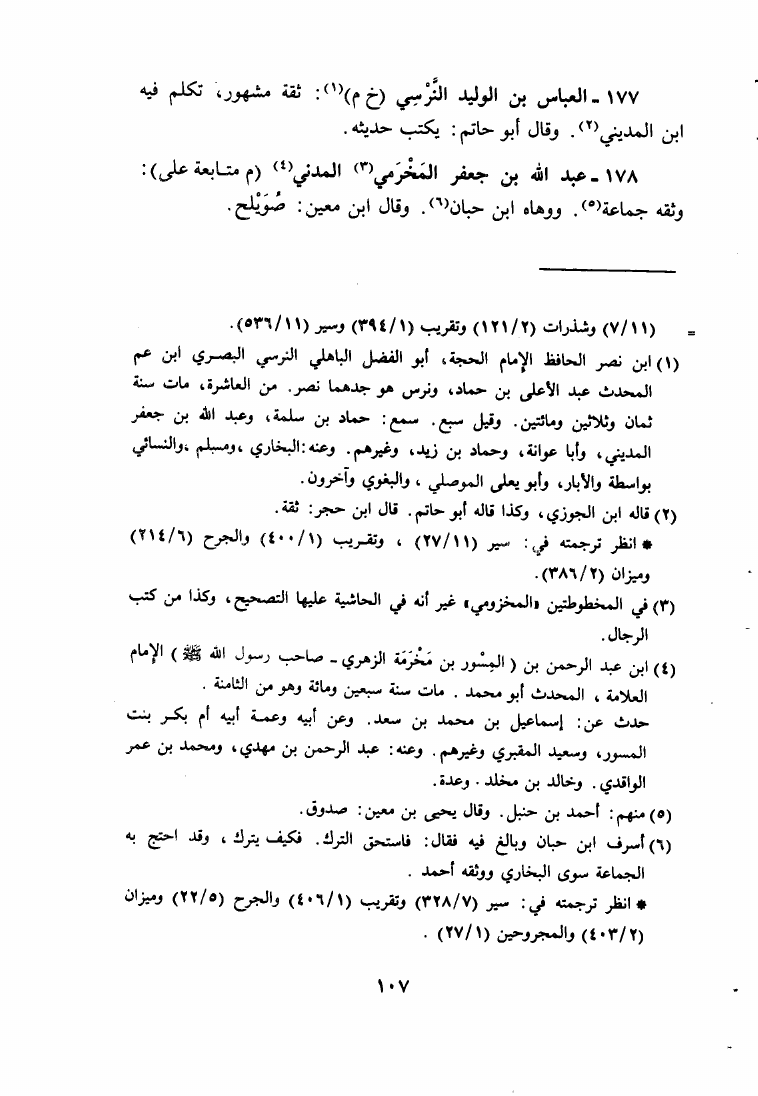 ١٧٧ - العباس بن الوليد النَّرْسِي (خ م)(١): ثقة مشهور، تكلم فيه
ابن المديني(٢). وقال أبو حاتم: يكتب حديثه.
١٧٨ - عبد الله بن جعفر المَخْرَمي(٣) المدني(٤) (م متابعة على):
وثقه جماعة(٥). ووهاه ابن حبان(٦). وقال ابن معين: صُوَيْلح.
= (٧/١١) وشذرات (١٢١/٢) وتقريب (٣٩٤/١) وسير (٥٣٦/١١).
(١) ابن نصر الحافظ الإمام الحجة، أبو الفضل الباهلي النرسي البصري ابن عم
المحدث عبد الأعلى بن حماد، ونرس هو جدهما نصر. من العاشرة، مات سنة
ثمان وثلاثين ومائتين. وقيل سبع. سمع: حماد بن سلمة، وعبد الله بن جعفر
المديني، وأبا عوانة، وحماد بن زيد، وغيرهم. وعنه: البخاري، ومسلم، والنسائي
بواسطة والأبار، وأبو يعلى الموصلي، والبغوي وآخرون.
(٢) قاله ابن الجوزي، وكذا قاله أبو حاتم. قال ابن حجر: ثقة.
* انظر ترجمته في: سير (٢٧/١١) ، وتقريب (٤٠٠/١) والجرح (٢١٤/٦)
وميزان (٣٨٦/٢).
(٣) في المخطوطتين «المخزومي» غير أنه في الحاشية عليها التصحيح، وكذا من كتب
الرجال.
(٤) ابن عبد الرحمن بن (المِسْور بن مَخْرَمَة الزهري - صاحب رسول الله ﷺ) الإمام
العلامة ، المحدث أبو محمد . مات سنة سبعين ومائة وهو من الثامنة .
حدث عن: إسماعيل بن محمد بن سعد. وعن أبيه وعمة أبيه أم بكر بنت
المسور، وسعيد المقبري وغيرهم. وعنه: عبد الرحمن بن مهدي، ومحمد بن عمر
الواقدي. وخالد بن مخلد . وعدة.
(٥) منهم: أحمد بن حنبل. وقال يحيى بن معين: صدوق.
(٦) أسرف ابن حبان وبالغ فيه فقال: فاستحق الترك. فكيف يترك ، وقد احتج به
الجماعة سوى البخاري ووثقه أحمد .
* انظر ترجمته في: سير (٣٢٨/٧) وتقريب (٤٠٦/١) والجرح (٢٢/٥) وميزان
(٤٠٣/٢) والمجروحين (٢٧/١) .
١٠٧